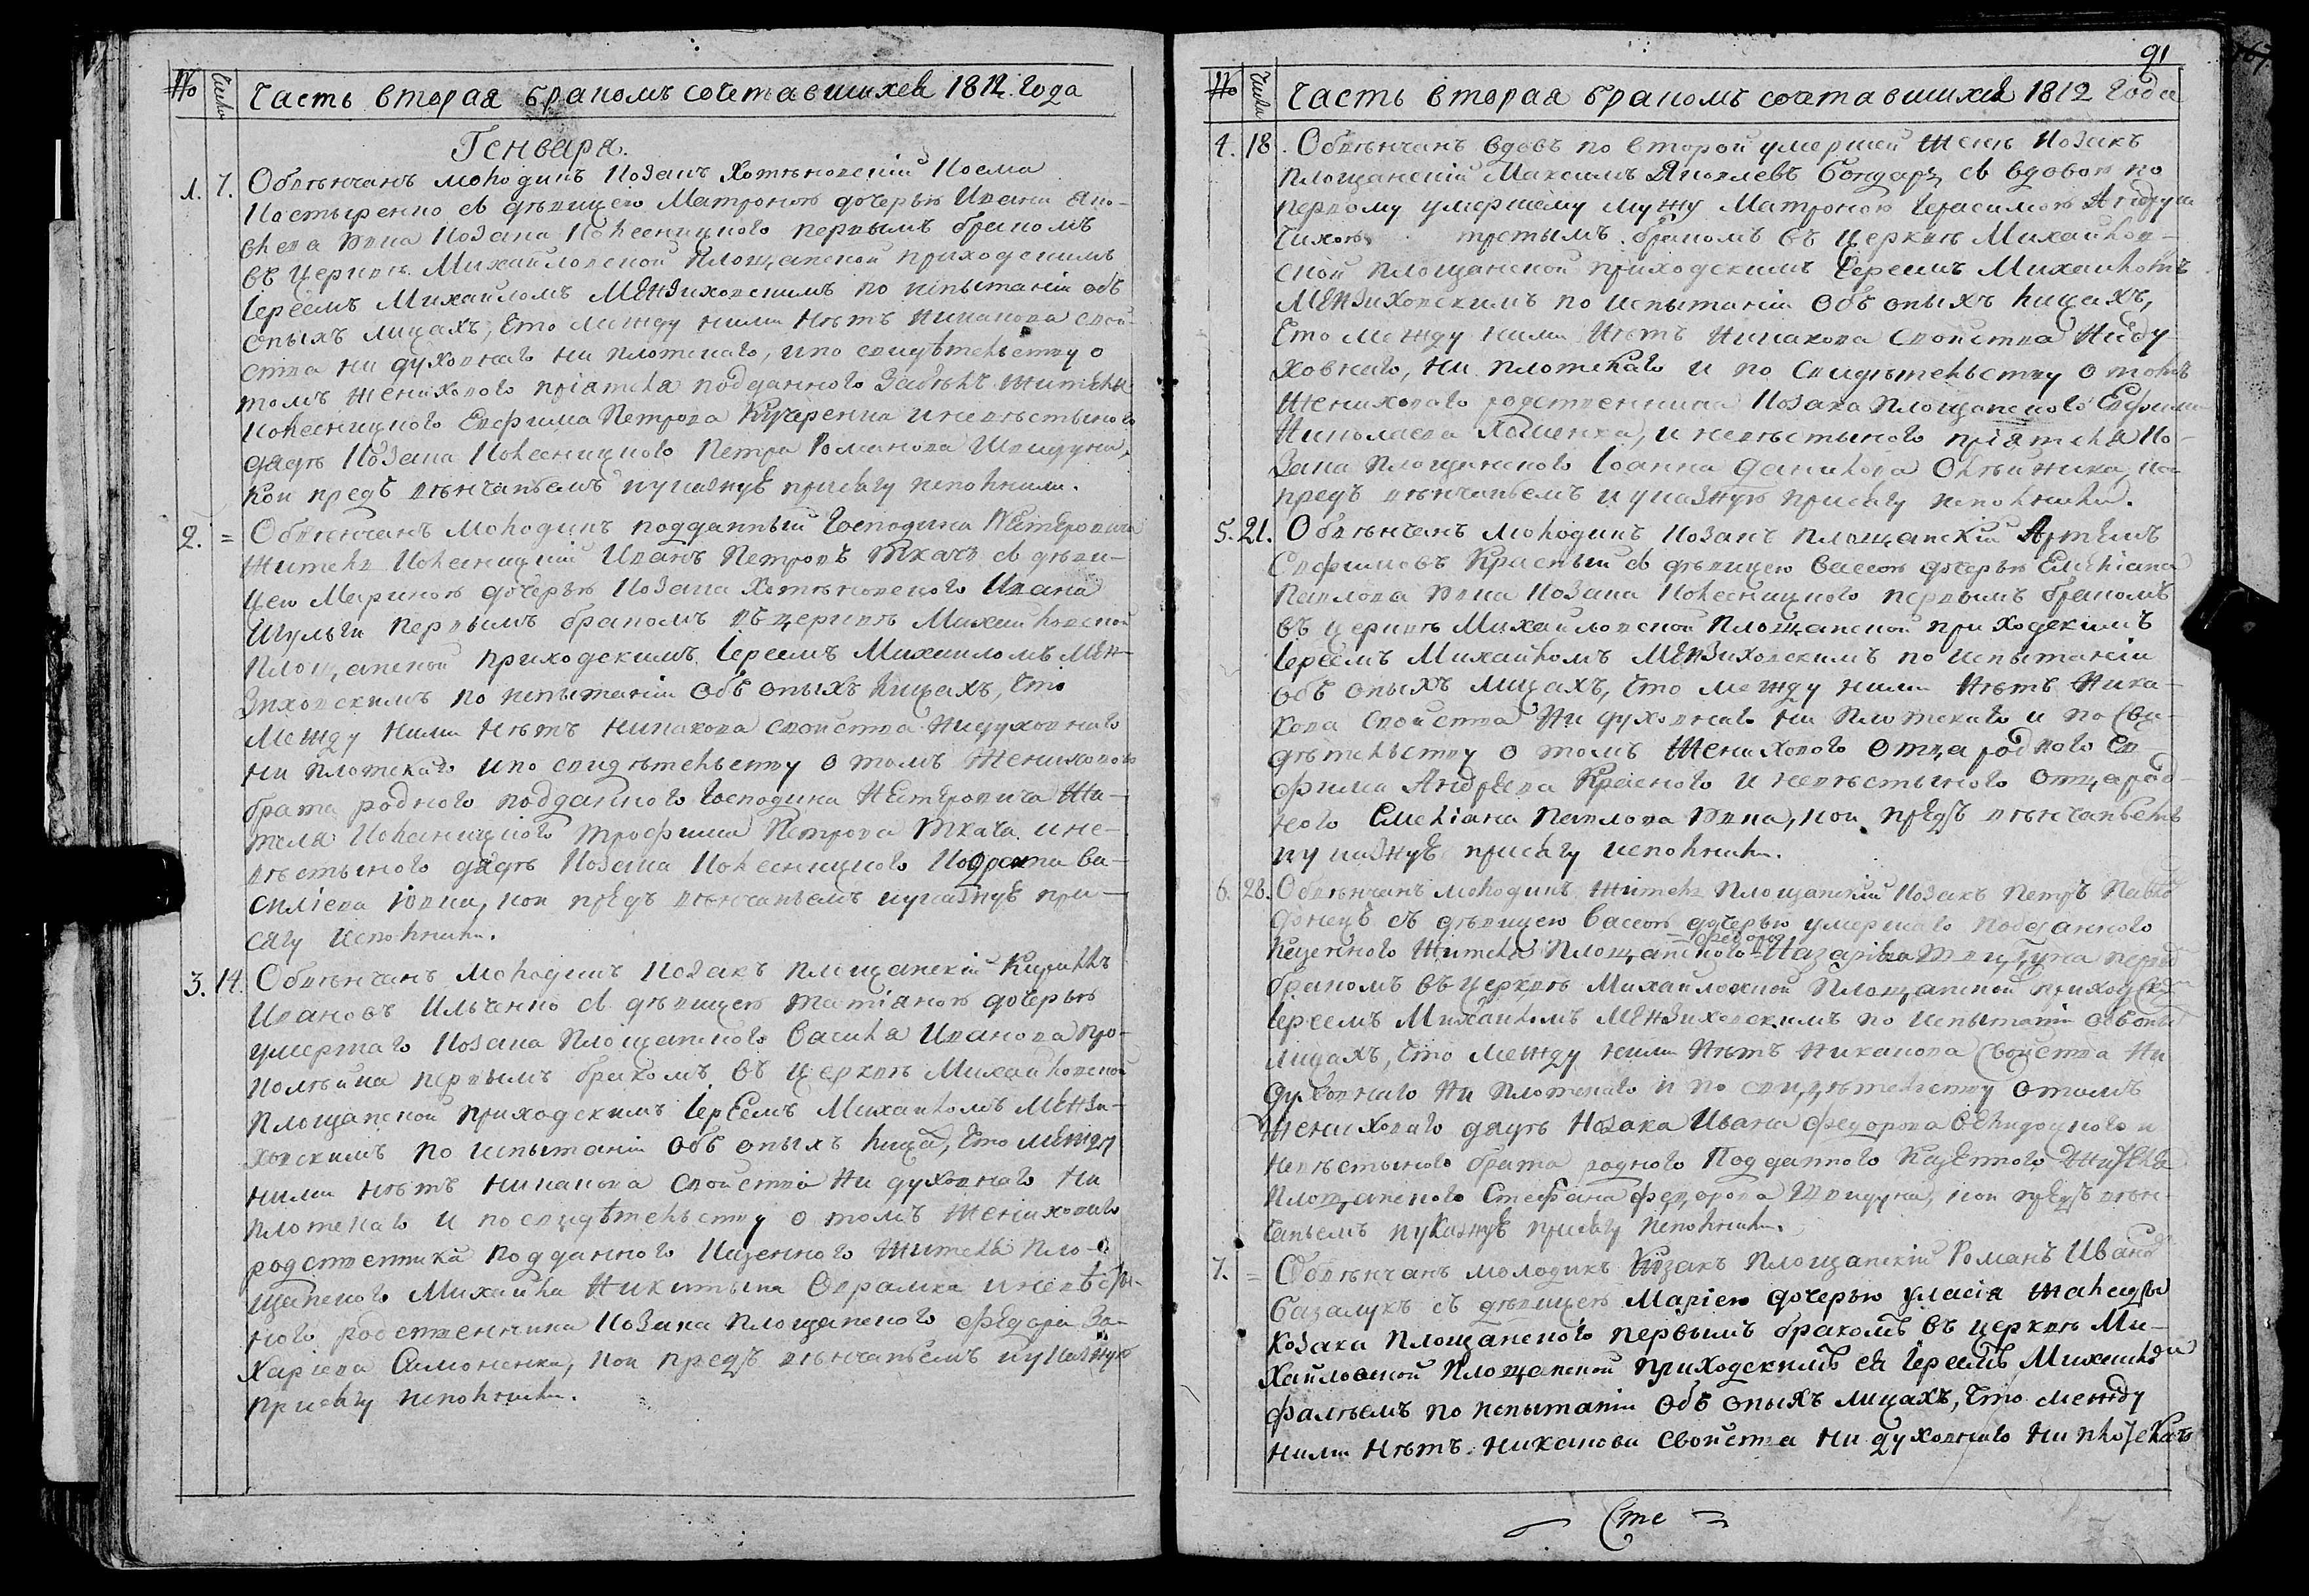 № Число Часть вторая бракомъ сочетавшихся 1812. года
Генваря.
1. 7. Обвѣнчанъ молодикъ козакъ Хотѣновскій Козма
Костыренко съ дѣвицею Матроною дочерью Ивана Яко-
влева козака Колесницкого первымъ бракомъ
въ церквѣ Михайловской Площанской приходскимъ
Іереемъ Михайломъ Мензиховскимъ по испытаніи объ
оныхъ лицахъ, что между ними нѣтъ никакова свой-
ства ни духовнаго ни плотскаго, и по свидѣтельству о
томъ женихового пріятеля подданного жителя
Колесницкого Евфима Петрова Кучеренка и невѣстыного
дядѣ козака Колесницкого Петра Романова
кои предъ вѣнчаньемъ и указную присягу исполнили.
2. = Обвѣнчанъ молодикъ подданный Господина Нестеровича
житель Колесницкій Иванъ Петровъ Ткачъ съ дѣви-
цею Мариною дочерью козака Хотѣновского Ивана
Шульги первымъ бракомъ въ церквѣ Михайловской
Площанской приходскимъ Іереемъ Михаиломъ Мен-
зиховскимъ по испытаніи объ оныхъ лицахъ, что
между ними нѣтъ никакова свойства ни духовнаго
ни плотскаго и по свидѣтельству о томъ женихового
брата родного подданного Господина Нестеровича жи-
теля Колесницкого Трофима Петрова Ткача и не-
вѣстыного дядѣ козака Колесницкого Кодрата Ва-
силіева кои предъ вѣнчаньемъ и указную при-
сягу исполнили.
3. 14. Обвѣнчанъ молодикъ козакъ Площанскій Кириллъ
Ивановъ Ильченко съ дѣвицею Татіаною дочерью
умершаго козака Площанского Василя Иванова Про-
первымъ бракомъ въ церквѣ Михайловской
Площанской приходскимъ Іереемъ Михаиломъ Мензи-
ховскимъ по испытаніи объ оныхъ лица, что между
ними нѣтъ никакова свойства ни духовнаго ни
плотскаго и по свидѣтельству о томъ женихового
родственника подданного казенного жителя Пло-
щанского Михайла Никитына и невѣсты-
ного родственника козака Площанского Федора За-
харіева Симоненка, кои предъ вѣнчаньемъ и указную
присягу исполнили.
91
№ Число Часть вторая бракомъ сочетавшихся 1812 года
4. 18. Обвѣнчанъ вдовъ по второй умершей женѣ козакъ
Площанскій Максимъ Яковлевъ Бондарь съ вдовою по
первому умершему мужу Матроною Герасимою
третымъ бракомъ въ церквѣ Михайлов-
ской Площанской приходскимъ Іереемъ Михаиломъ
Мензиховскимъ по испытаніи объ оныхъ лицахъ,
что между ними нѣтъ никакова свойства ни ду-
ховнаго, ни плотскаго и по свидѣтельству о томъ
женихового родственника козака Площанского Евфима
Николаева и невѣстыного пріятеля ко-
зака Площанского Іоанна Данилова Олѣйника, кои
предъ вѣнчаньемъ и указную присягу исполнили.
5. 21. Обвѣнчанъ молодикъ козакъ Площанскій Артемъ
Евфимовъ Красный съ дѣвицею Вассою дочерью Емеліана
Павлова козака Колесницкого первымъ бракомъ
въ церквѣ Михайловской Площанской приходскимъ
Іереемъ Михайломъ Мензиховскимъ по испытаніи
объ оныхъ лицахъ, что между ними нѣтъ ника-
кова свойства ни духовнаго ни плотскаго и по сви-
дѣтельству о томъ женихового отца родного Ев-
фима Андреева Красного и невѣстыного отца род-
ного Емеліана Павлова кои предъ вѣнчаньемъ
и указную присягу исполнили.
6. 28. Обвѣнчанъ молодикъ житель Площанскій козакъ Петръ
съ дѣвицею Вассою дочерью умершаго подданного
казенного жителя Площанского
бракомъ въ церквѣ Михайловской Площанской приходским
Іереемъ Михайломъ Мензиховскимъ по испытаніи объ оны
лицахъ, что между ними нѣтъ никакова свойства ни
духовнаго ни плотскаго и по свидѣтельству о томъ
женихового дядѣ козака Ивана Федорова и
невѣстыного брата родного подданного казенного жителя
Площанского Стефана Федорова кои предъ вѣн-
чаньемъ и указную присягу исполнили.
7. = Обвѣнчанъ молодикъ козакъ Площанскій Романъ Ивановъ
Базалукъ съ дѣвицею Маріею дочерью Уласія
козака Площанского первымъ бракомъ въ церквѣ Ми-
хайловской Площанской приходскимъ ея Іереемъ Михаило
по испытаніи объ оныхъ лицахъ, что между
ними нѣтъ никакова свойства ни духовнаго ни плотскаго
Сте